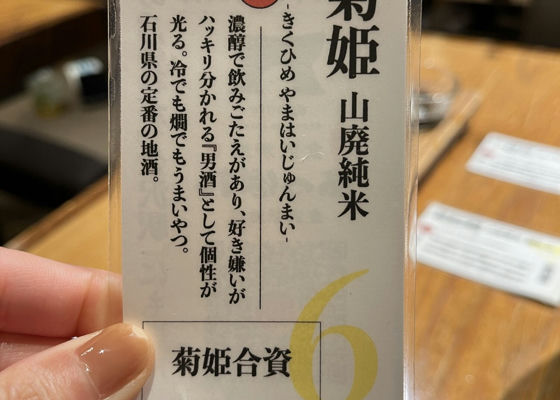 菊姫 山廃純米
-きくひめ やまはいじゅんまい-
濃醇で飲みごたえがあり、好き嫌いが
ハッキリ分かれる『男酒』として個性が
光る。冷でも燗でもうまいやつ。
石川県の定番の地酒。
菊姫合資
6